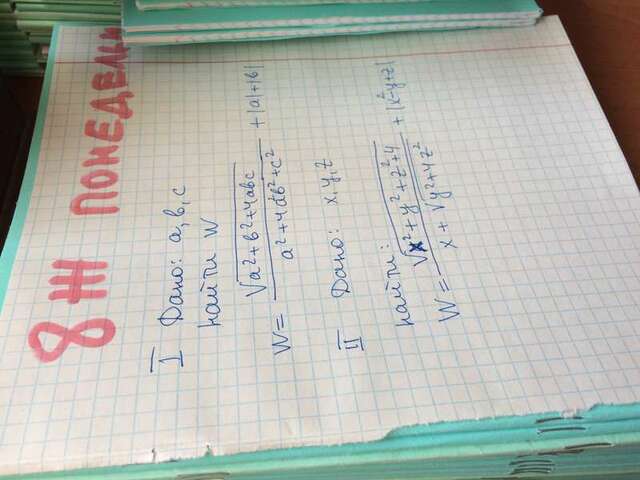 8 Ж ПОНЕДЕЛЬН
I Дано: a, в, c
найти W
W = √(a²+в²+4aвc) / (a²+4aв²+c²) + |a|+|в|
II Дано: x, y, z
найти:
W = √(x²+y²+z²+4) / (x+√(y²+4z²)) + |x²-y+z|